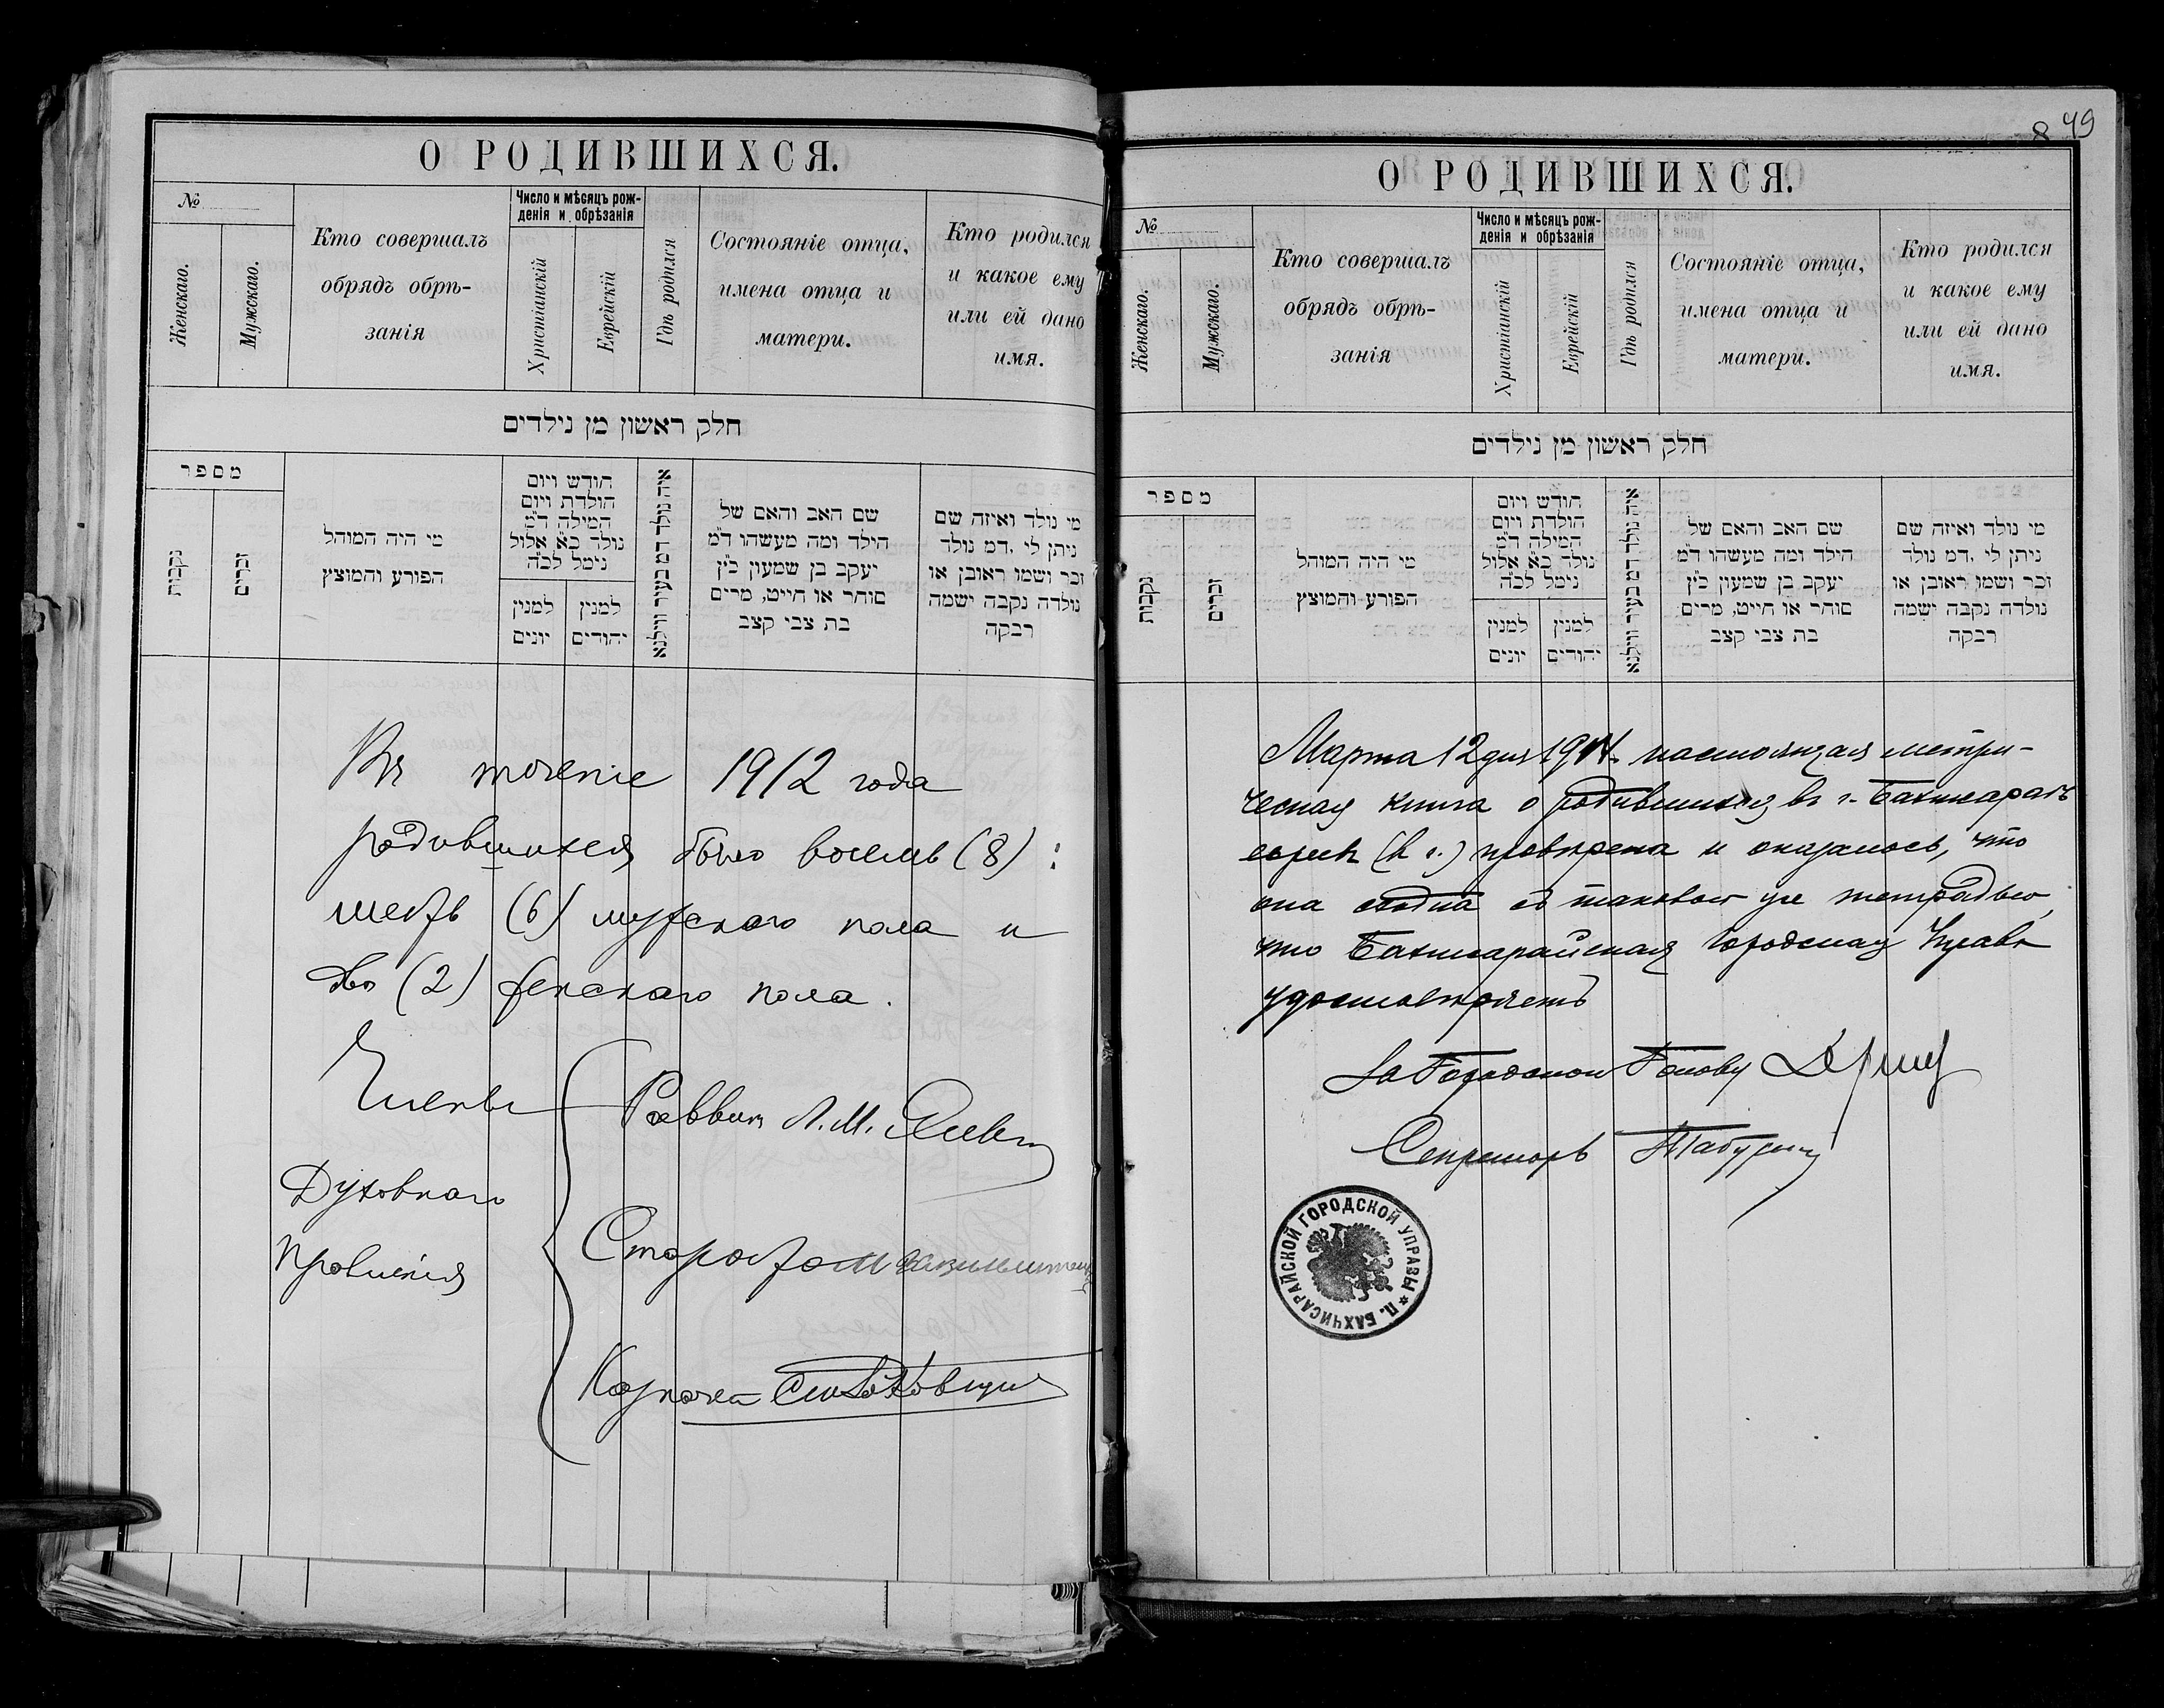 О РОДИВШИХСЯ.
№
Женскаго.
Мужскаго.
Кто совершалъ
обрядъ обрѣ-
занія
Число и мѣсяцъ рож-
денія и обрѣзанія
Христіанскій
Еврейскій
Гдѣ родился
Состояніе отца,
имена отца и
матери.
Кто родился
и какое ему
или ей дано
имя.
חלק ראשון מן נילדים
מספר
נקבות
זכרים
מי היה המוהל
הפורע והמוצץ
חודש ויום
הולדת ויום
המילה ד״מ
נולד כ״א אלול
נימל לכ״ה
למנין
יונים
למנין
יהודים
איה נולד דמ בעיר ווילנא
שם האב והאם של
הילד ומה מעשהו ד״מ
יעקב בן שמעון כ״ץ
סוחר או חייט, מרים
בת צבי קצב
מי נולד ואיזה שם
ניתן לי .דמ נולד
זכר ושמו ראובן או
נולדה נקבה ישמה
רבקה
Въ теченіе 1912 года
родившихся было восемь (8) :
шесть (6) мужскаго пола и
два (2) женскаго пола.
Члены
Духовнаго
Правленія
Раввин Л. М.
Староста
Казначей
8 49
О РОДИВШИХСЯ.
№
Женскаго.
Мужскаго.
Кто совершалъ
обрядъ обрѣ-
занія
Число и мѣсяцъ рож-
денія и обрѣзанія
Христіанскій
Еврейскій
Гдѣ родился
Состояніе отца,
имена отца и
матери.
Кто родился
и какое ему
или ей дано
имя.
חלק ראשון מן נילדים
מספר
נקבות
זכרים
מי היה המוהל
הפורע והמוצץ
חודש ויום
הולדת ויום
המילה ד״מ
נולד כ״א אלול
נימל לכ״ה
למנין
יונים
למנין
יהודים
איה נולד דמ בעיר ווילנא
שם האב והאם של
הילד ומה מעשהו ד״מ
יעקב בן שמעון כ״ץ
סוחר או חייט, מרים
בת צבי קצב
מי נולד ואיזה שם
ניתן לי .דמ נולד
זכר ושמו ראובן או
נולדה נקבה ישמה
רבקה
Марта 12 дня настоящая метри-
ческая книга о родившихся въ г. Бахчисараѣ
евреях провѣрена и оказалось, что
она сходна съ таковою же тетрадью,
что Бахчисарайская Городская Управа
удостовѣряетъ
За Городского Голову
Секретарь
П. БАХЧИСАРАЙСКОЙ ГОРОДСКОЙ УПРАВЫ *